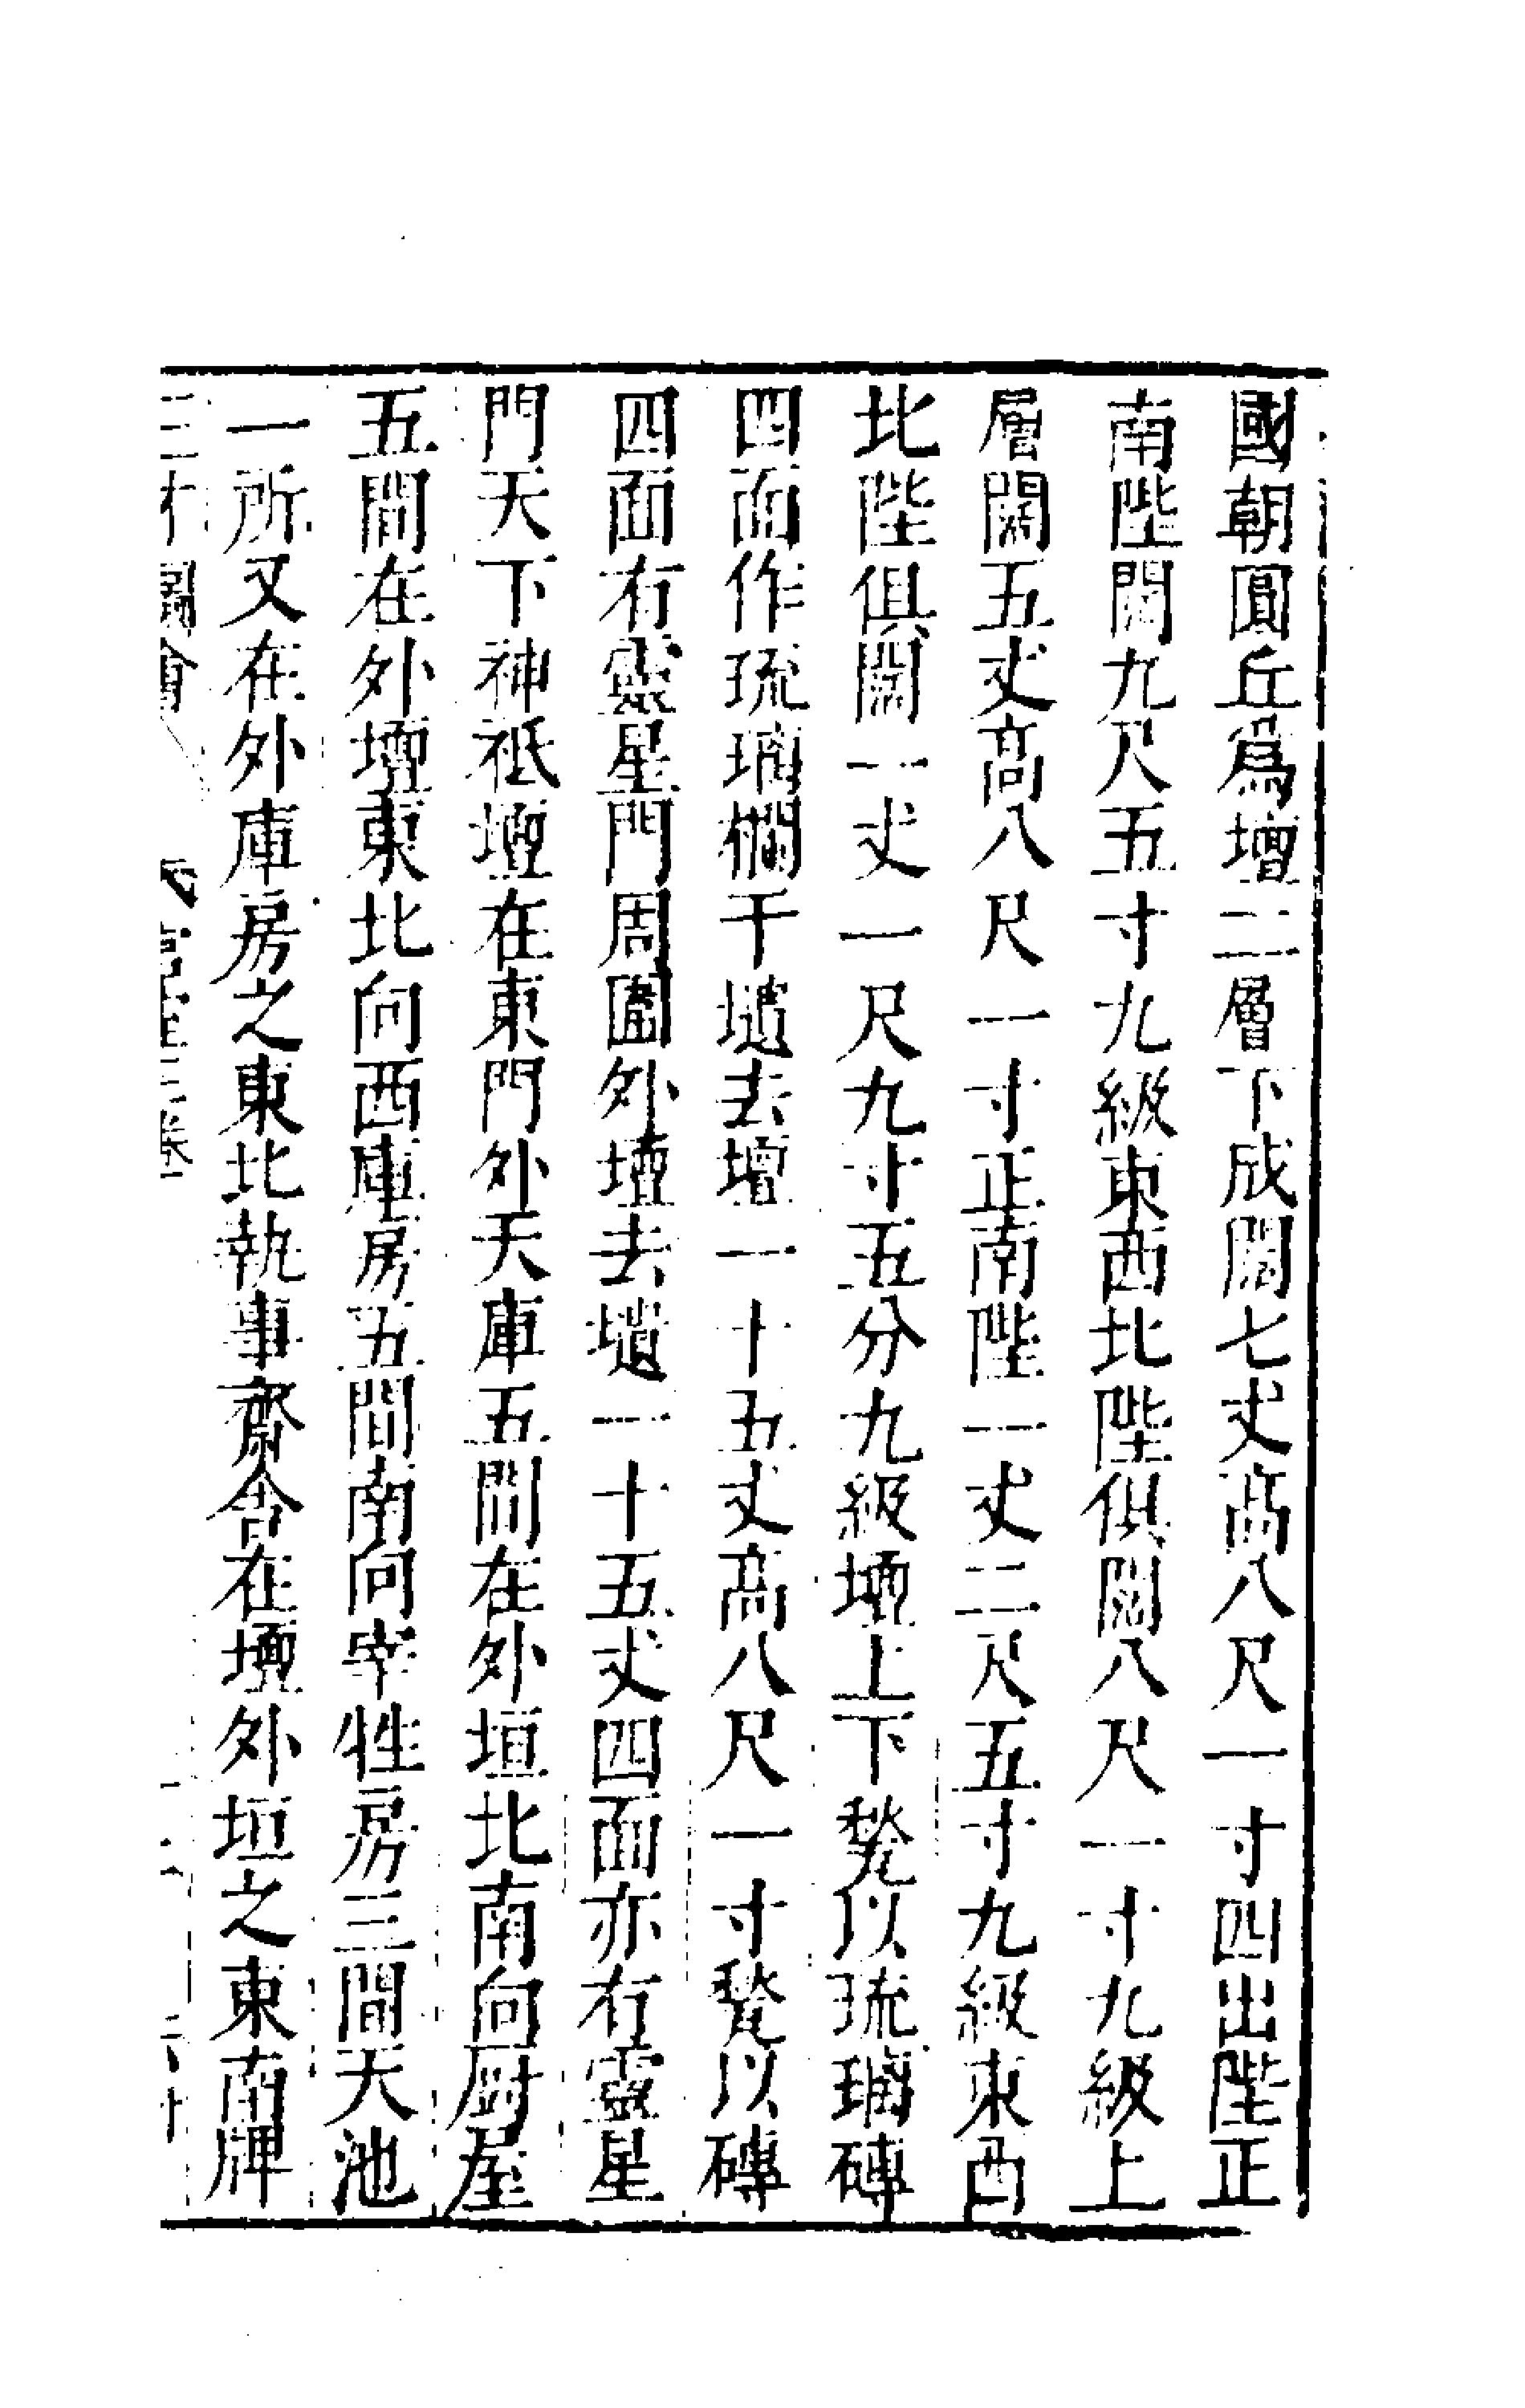 國朝圓丘爲壇二層下成闊七丈高八尺一寸四出陛正
南陛闊九尺五寸九級東西北陛俱闊八尺一寸九級上
層闊五丈高八尺一寸正南陛一丈二尺五寸九級東西
北陛俱闊一丈一尺九寸五分九級壇上下甃以琉璃磚
四面作琉璃欄干壝去壇一十五丈高八尺一寸甃以磚
四面有靈星門周圍外壇去壝一十五丈四面亦有靈星
門天下神祇壇在東門外天庫五間在外垣北南向厨屋
五間在外壇東北向西庫房五間南向宰牲房三間天池
一所又在外庫房之東北執事齋舍在壇外垣之東南牌
三才圖會 宮室三卷